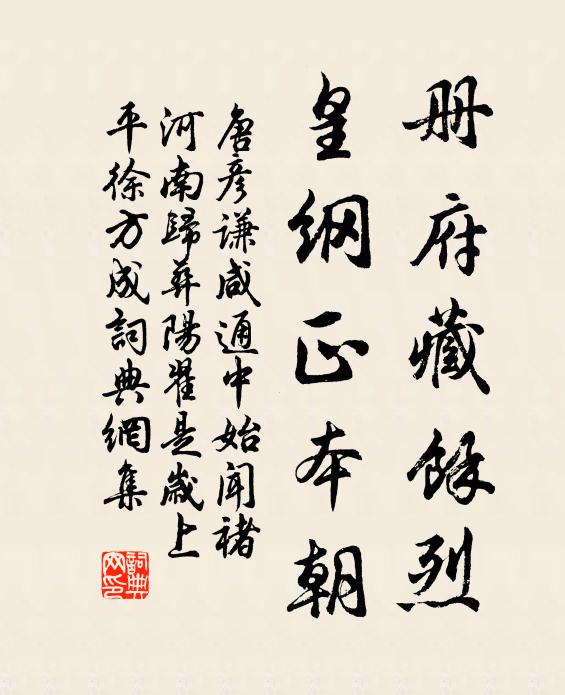 册府藏餘烈
皇纲正本朝
唐彦谦咸通中始闻褚
河南歸葬陽翟是歲上
平徐方成詞典網集
詞典网印